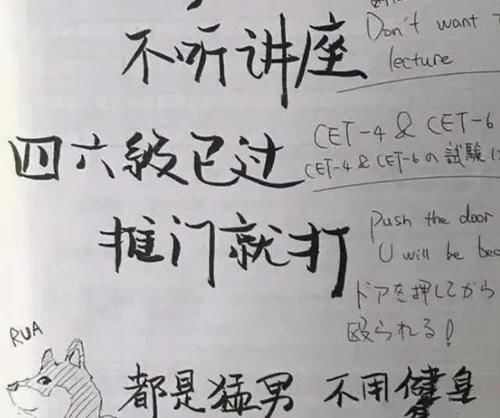 不听讲座
Don't want
lecture
四六級已过
CET-4 & CET-6
CET-4 & CET-6の試験に
推门就打
Push the door
U will be
ドアを押してから
殴られる!
RUA
都是猛男 不用健身